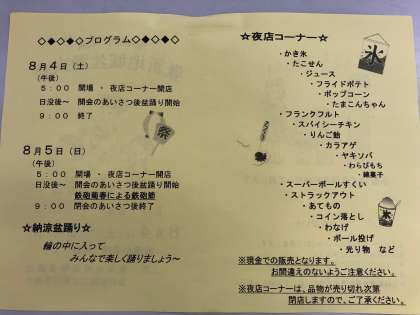 ◇◆◇◆◇プログラム◇◆◇◆◇
8月4日(土)
(午後)
5:00 開場 ・ 夜店コーナー開店
日没後~ 開会のあいさつ後盆踊り開始
9:00 終了
8月5日(日)
(午後)
5:00 開場 ・ 夜店コーナー開店
日没後~ 開会のあいさつ後盆踊り開始
鉄砲菊春による鉄砲節
9:00 閉会のあいさつ後終了
☆納涼盆踊り☆
輪の中に入って
みんなで楽しく踊りましょう~
☆夜店コーナー☆
・かき氷
・たこせん
・ジュース
・フライドポテト
・ポップコーン
・たまこんちゃん
・フランクフルト
・スパイシーチキン
・りんご飴
・カラアゲ
・ヤキソバ
・わらびもち
・綿菓子
・スーパーボールすくい
・ストラックアウト
・あてもの
・コイン落とし
・わなげ
・ボール投げ
・光り物 など
※現金での販売となります。
お間違えのないようご注意ください。
※夜店コーナーは、品物が売り切れ次第
閉店しますので、ご了承ください。
氷
祭
氷